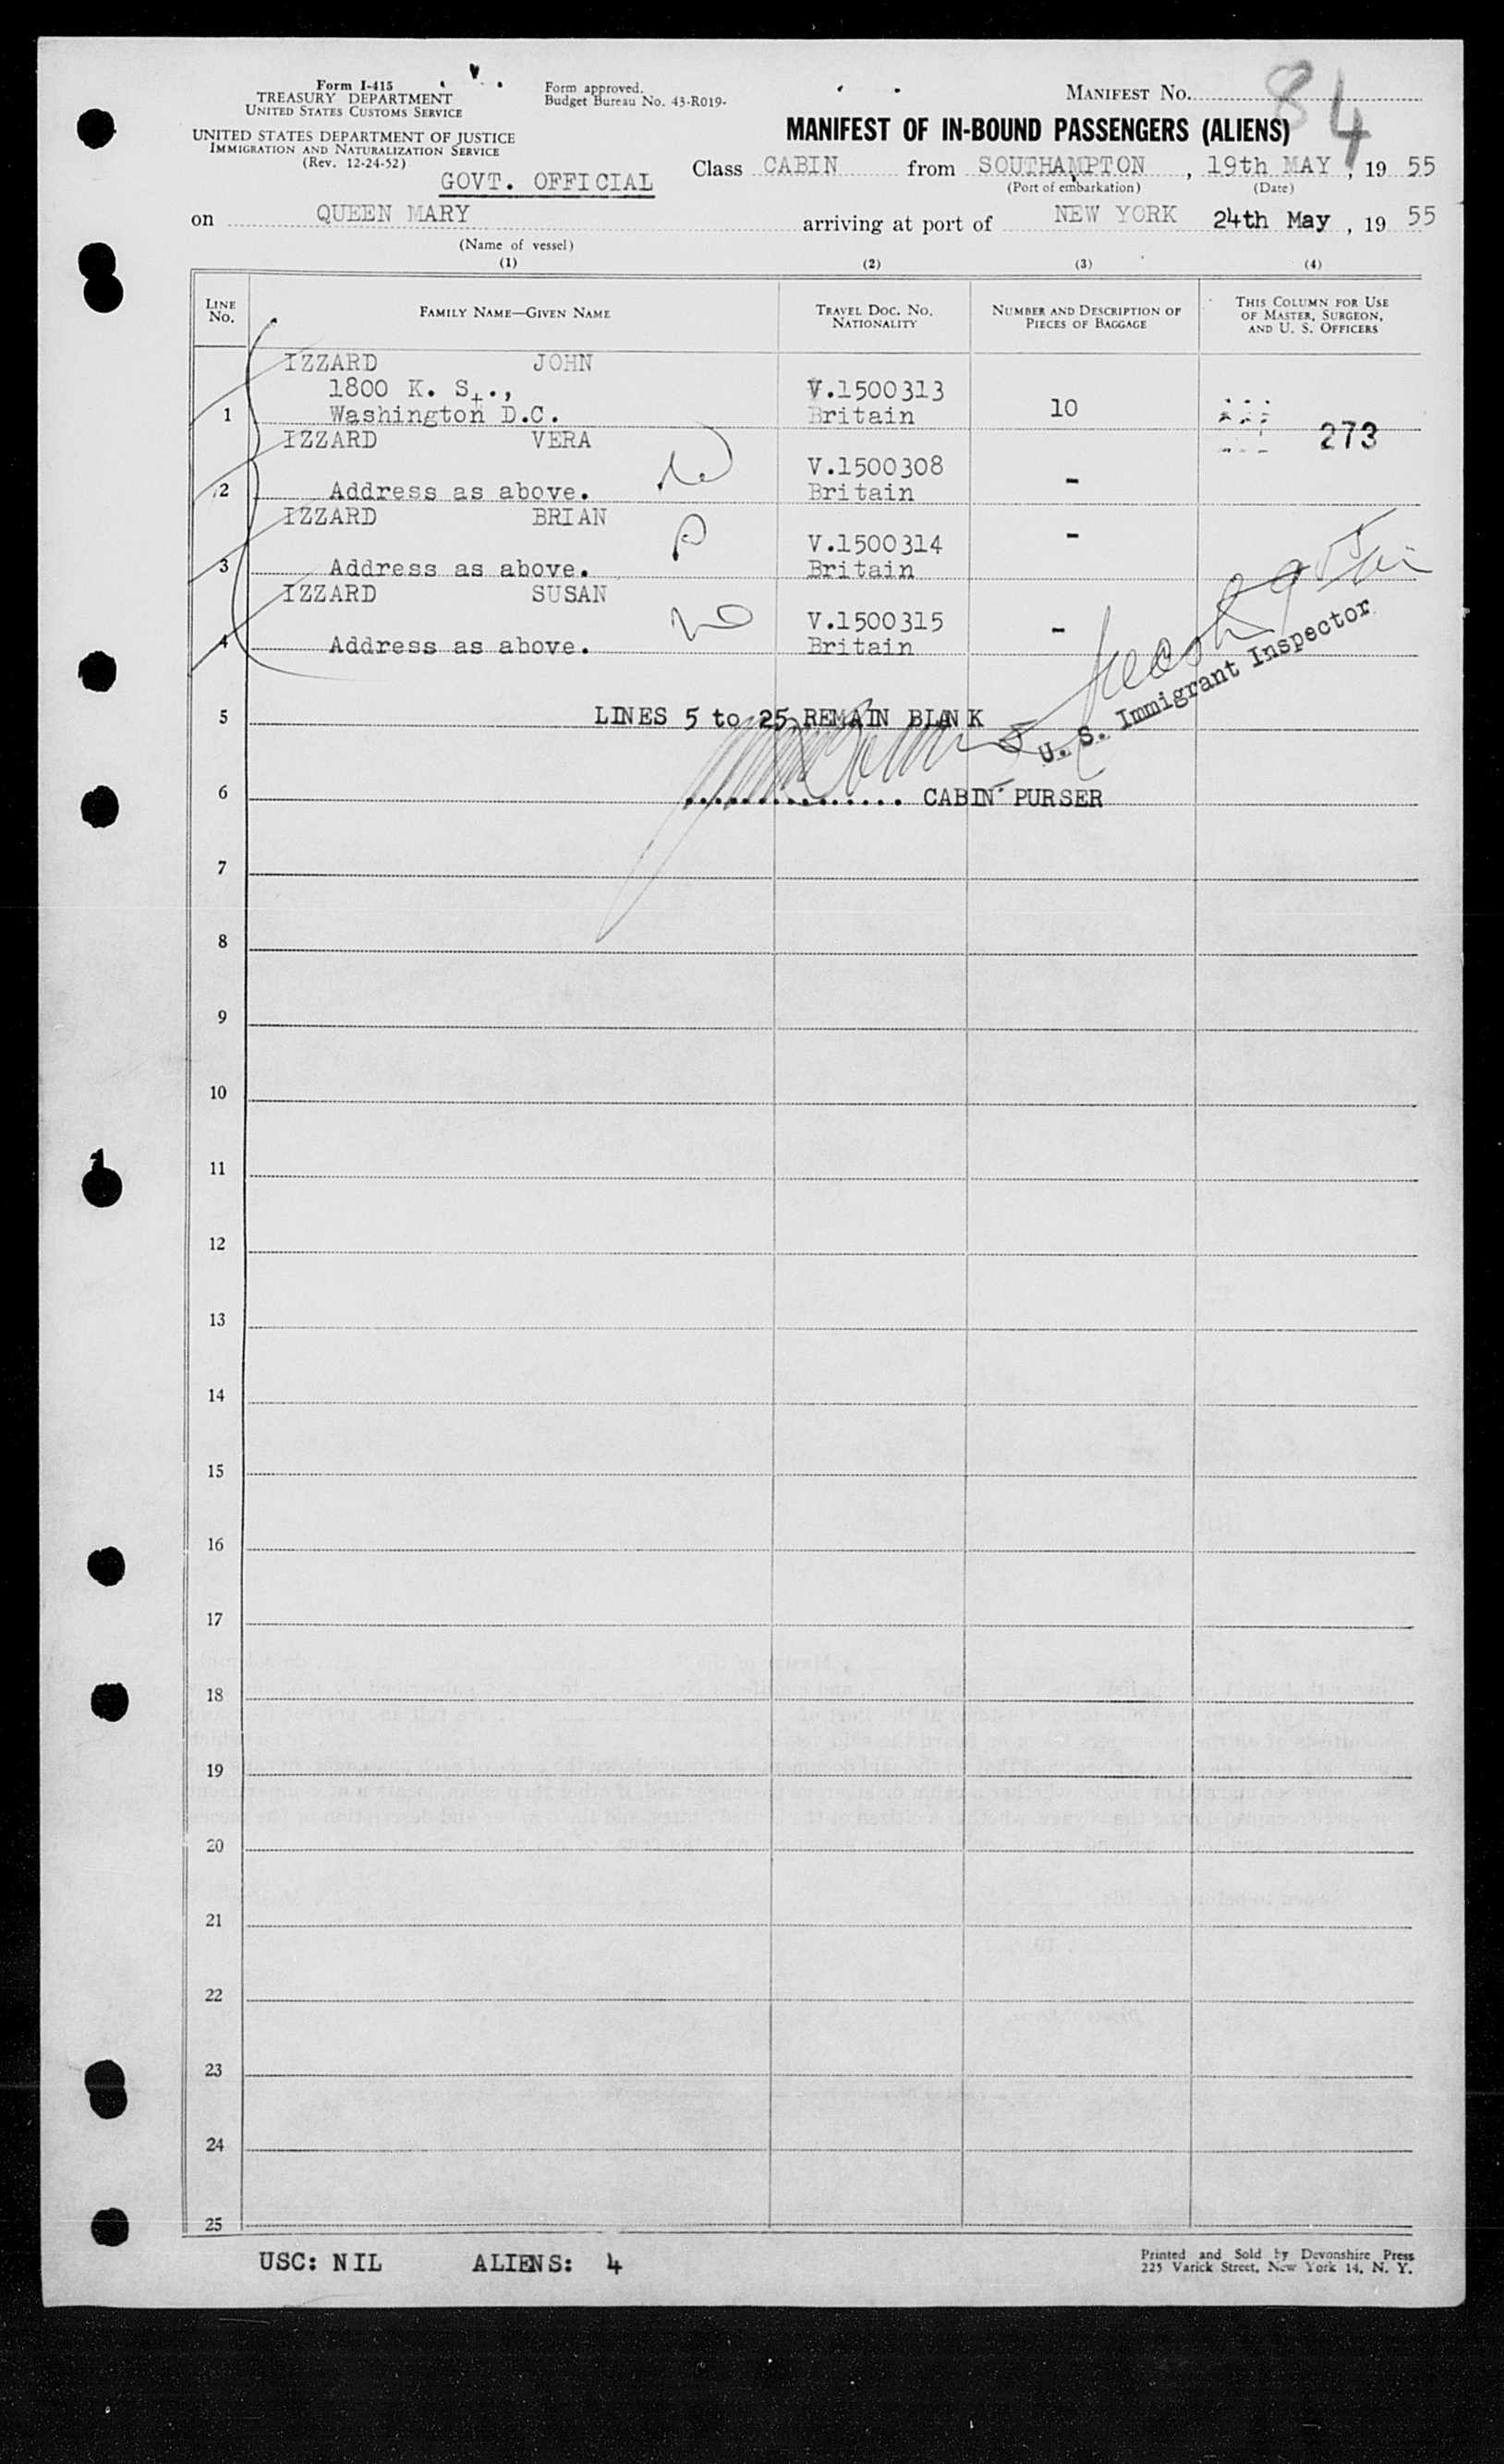 Form I-415
TREASURY DEPARTMENT
UNITED STATES CUSTOMS SERVICE
UNITED STATES DEPARTMENT OF JUSTICE
IMMIGRATION AND NATURALIZATION SERVICE
(Rev. 12-24-52)
Form approved.
Budget Bureau No. 43-R019-
MANIFEST NO. 84
MANIFEST OF IN-BOUND PASSENGERS (ALIENS)
GOVT. OFFICIAL
Class CABIN from SOUTHAMPTON, 19th MAY, 19 55
(Port of embarkation) (Date)
on QUEEN MARY arriving at port of NEW YORK 24th May, 19 55
(Name of vessel)
(1) (2) (3) (4)
LINE NO. FAMILY NAME—GIVEN NAME TRAVEL DOC. NO. NATIONALITY NUMBER AND DESCRIPTION OF PIECES OF BAGGAGE THIS COLUMN FOR USE OF MASTER, SURGEON, AND U. S. OFFICERS
IZZARD JOHN
1800 K. St., V.1500313
1 Washington D.C. Britain 10 273
IZZARD VERA
V.1500308
2 Address as above. Britain -
IZZARD BRIAN
V.1500314 -
3 Address as above. Britain
IZZARD SUSAN
V.1500315 -
4 Address as above. Britain
U. S. Immigrant Inspector
5 LINES 5 to 25 REMAIN BLANK
6 ............... CABIN PURSER
7
8
9
10
11
12
13
14
15
16
17
18
19
20
21
22
23
24
25
USC: NIL ALIENS: 4
Printed and Sold by Devonshire Press
225 Varick Street, New York 14, N. Y.